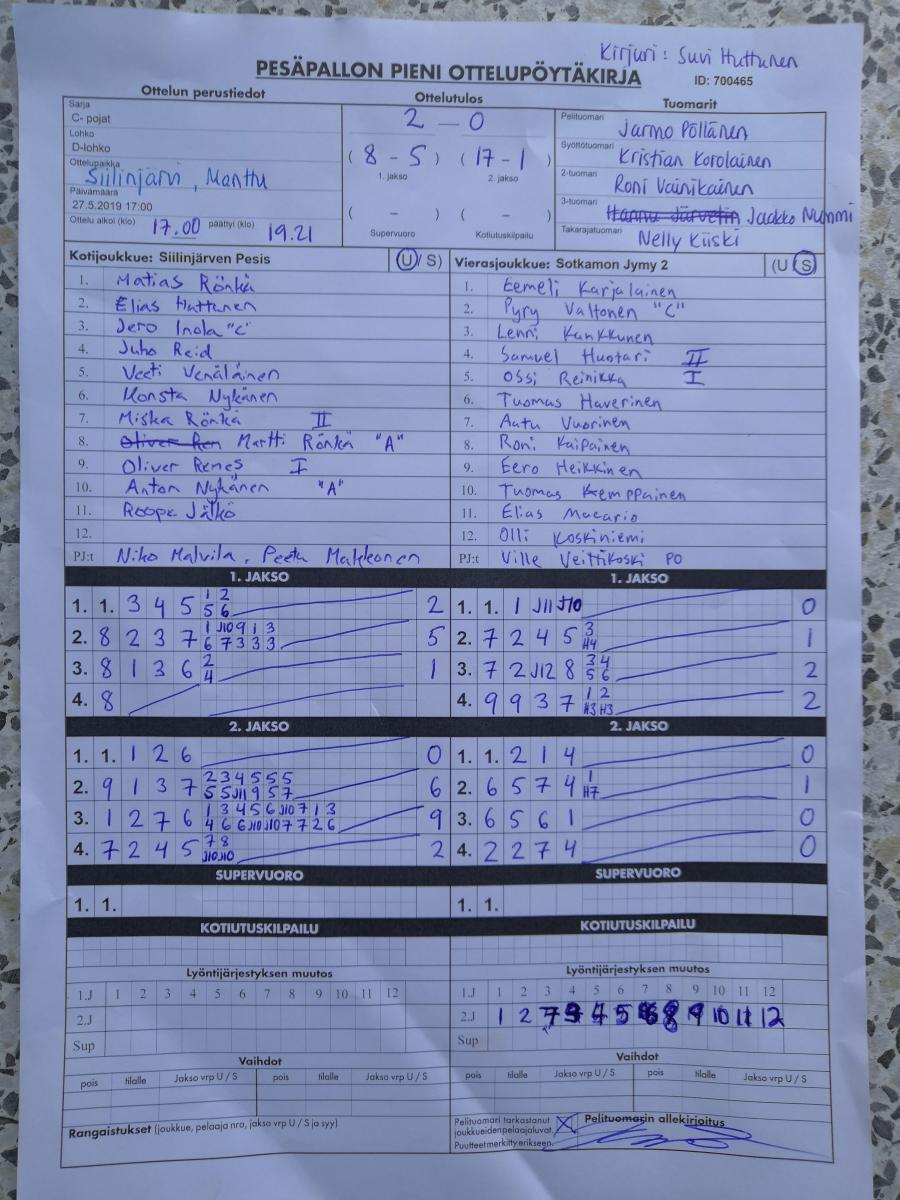 Kirjuri: Suvi Huttunen
PESÄPALLON PIENI OTTELUPÖYTÄKIRJA
ID: 700465
Ottelun perustiedot
Sarja
C- pojat
Lohko
D-lohko
Ottelupaikka
Siilinjärvi, Manttu
Päivämäärä
27.5.2019 17:00
Ottelu alkoi (klo) 17.00 päättyi (klo) 19.21
Ottelutulos
2 - 0
( 8 - 5 ) ( 17 - 1 )
1. jakso 2. jakso
( - ) ( - )
Supervuoro Kotiutuskilpailu
Tuomarit
Pelituomari Jarmo Pöllänen
Syöttötuomari Kristian Korolainen
2-tuomari Roni Vainikainen
3-tuomari Hannu Järvelin Jaakko Nummi
Takarajatuomari Nelly Kiiski
Kotijoukkue: Siilinjärven Pesis (U / S)
1. Matias Rönkä
2. Elias Huttunen
3. Jero Inola "C"
4. Juho Reid
5. Veeti Venäläinen
6. Konsta Nykänen
7. Miska Rönkä II
8. Oliver Ren Martti Rönkä "A"
9. Oliver Renes I
10. Anton Nykänen "A"
11. Roope Jälkö
12.
PJ:t Niko Malvila, Peetu Makkonen
Vierasjoukkue: Sotkamon Jymy 2 (U S)
1. Eemeli Karjalainen
2. Pyry Valtonen "C"
3. Lenni Kunkkunen
4. Samuel Huotari II
5. Ossi Reinikka I
6. Tuomas Haverinen
7. Aatu Vuorinen
8. Roni Kaipainen
9. Eero Heikkinen
10. Tuomas Kemppainen
11. Elias Macario
12. Olli Koskiniemi
PJ:t Ville Veittikoski PO
1. JAKSO
1. 1. 3 4 5 1 2 2
5 6
2. 8 2 3 7 1 J10 9 1 3 5
6 7 3 3 3
3. 8 1 3 6 2 1
4
4. 8
2. JAKSO
1. 1. 1 2 6 0
2. 9 1 3 7 2 3 4 5 5 5 6
5 5 J11 9 5 7
3. 1 2 7 6 1 3 4 5 6 J10 7 1 3 9
4 6 6 J10 J10 7 7 2 6
4. 7 2 4 5 7 8 2
J10 J10
SUPERVUORO
1. 1.
KOTIUTUSKILPAILU
Lyöntijärjestyksen muutos
1.J 1 2 3 4 5 6 7 8 9 10 11 12
2.J
Sup
Vaihdot
pois tilalle Jakso vrp U / S pois tilalle Jakso vrp U / S
Rangaistukset (joukkue, pelaaja nro, jakso vrp U / S ja syy)
1. JAKSO
1. 1. 1 J11 J10 0
2. 7 2 4 5 3 1
H4
3. 7 2 J12 8 3 4 2
5 6
4. 9 9 3 7 1 2 2
H3 H3
2. JAKSO
1. 1. 2 1 4 0
2. 6 5 7 4 1 1
H7
3. 6 5 6 1 0
4. 2 2 7 4 0
SUPERVUORO
1. 1.
KOTIUTUSKILPAILU
Lyöntijärjestyksen muutos
1.J 1 2 3 4 5 6 7 8 9 10 11 12
2.J 1 2 7 4 5 8 9 10 11 12
Sup
Vaihdot
pois tilalle Jakso vrp U / S pois tilalle Jakso vrp U / S
Pelituomari tarkastanut
joukkueiden pelaajaluvat.
Puutteet merkitty erikseen.
Pelituomarin allekirjoitus